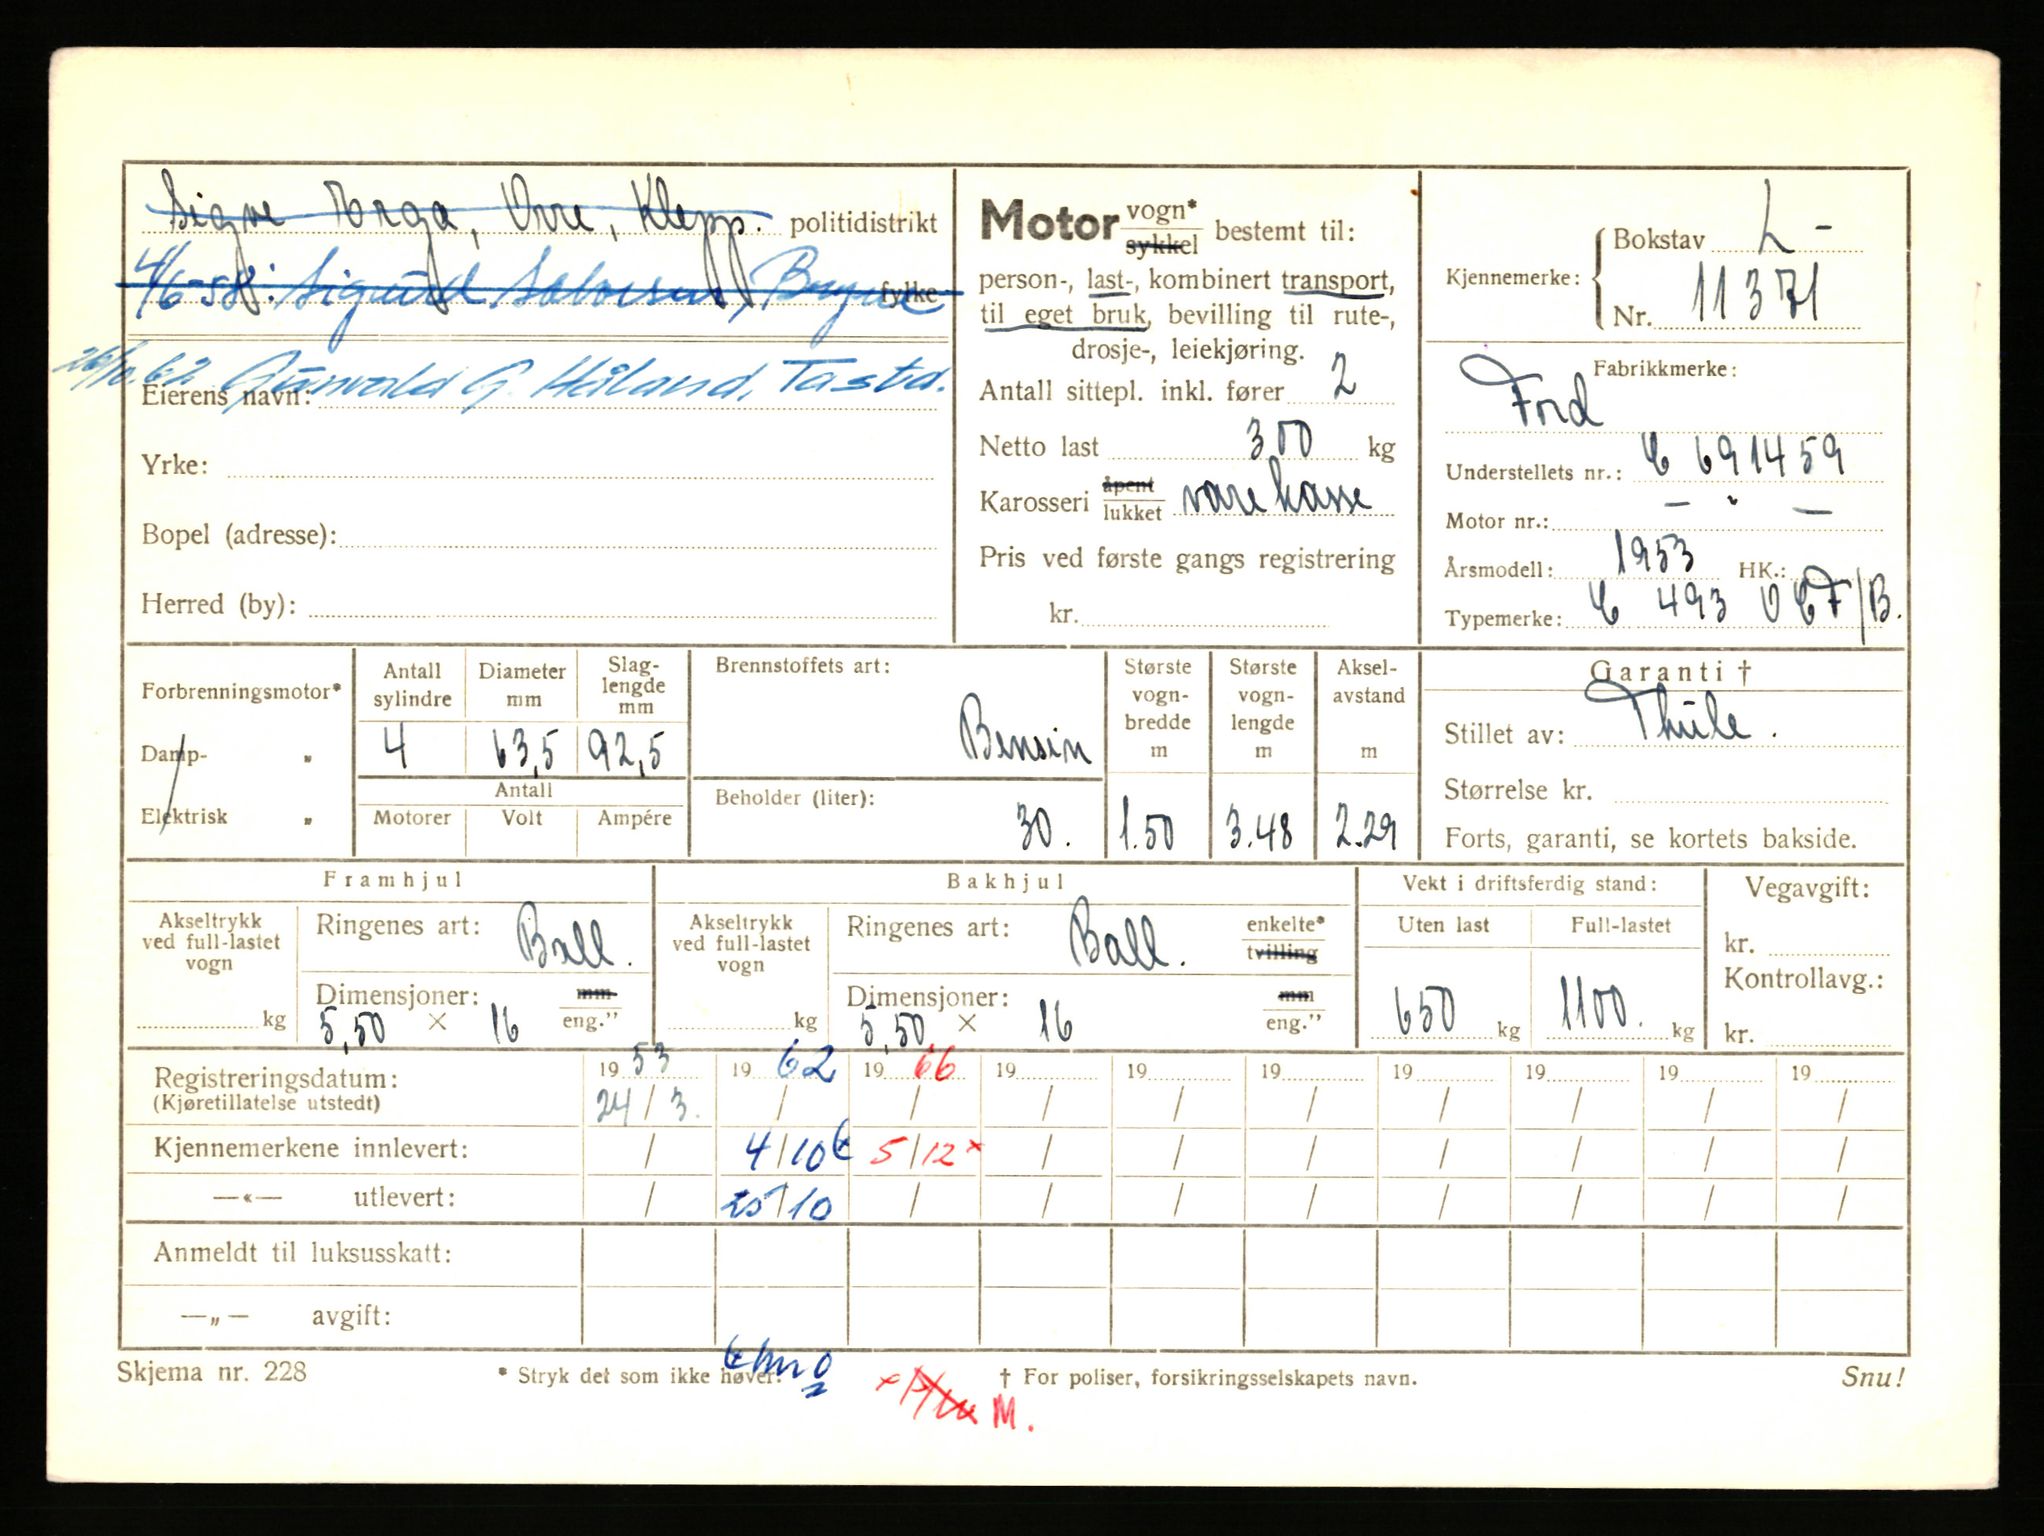 Sigve Torga, Orre, Klepp. politidistrikt
4/6-58: Sigurd Salvesen, Bryne fylke
26/10.62 Gunvald G. Håland, Tasta.
Eierens navn:
Yrke:
Bopel (adresse):
Herred (by):
Motor vogn* sykkel bestemt til:
person-, last-, kombinert transport,
til eget bruk, bevilling til rute-,
drosje-, leiekjøring.
Antall sittepl. inkl. fører 2
Netto last 300 kg
Karosseri åpent lukket varekasse
Pris ved første gangs registrering
kr.
Kjennemerke: Bokstav L -
Nr. 11371
Fabrikkmerke:
Ford
Understellets nr.: C 691459
Motor nr.: — " —
Årsmodell: 1953 HK.:
Typemerke: C 493 O CF/B.
Forbrenningsmotor*
Damp- „
Elektrisk „
Antall sylindre
Diameter mm
Slag-lengde mm
4 63,5 92,5
Antall
Motorer Volt Ampére
Brennstoffets art:
Bensin
Beholder (liter):
30.
Største vogn-bredde m
1.50
Største vogn-lengde m
3.48
Aksel-avstand m
2.29
Garanti †
Stillet av: Thule.
Størrelse kr.
Forts, garanti, se kortets bakside.
Framhjul
Akseltrykk ved full-lastet vogn
kg
Ringenes art: Ball.
Dimensjoner: mm
5,50 × 16 eng.”
Bakhjul
Akseltrykk ved full-lastet vogn
kg
Ringenes art: Ball. enkelte* tvilling
Dimensjoner: mm
5,50 × 16 eng.”
Vekt i driftsferdig stand:
Uten last Full-lastet
650 kg 1100. kg
Vegavgift:
kr.
Kontrollavg.:
kr.
Registreringsdatum: 1953 1962 1966 19 19 19 19 19 19 19
(Kjøretillatelse utstedt) 24/3. / / / / / / / / /
Kjennemerkene innlevert: / 4/10 5/12 x / / / / / / /
—«— utlevert: / 25/10 / / / / / / / /
Anmeldt til luksusskatt:
—„— avgift:
Skjema nr. 228 * Stryk det som ikke høver. † For poliser, forsikringsselskapets navn. Snu!
M.